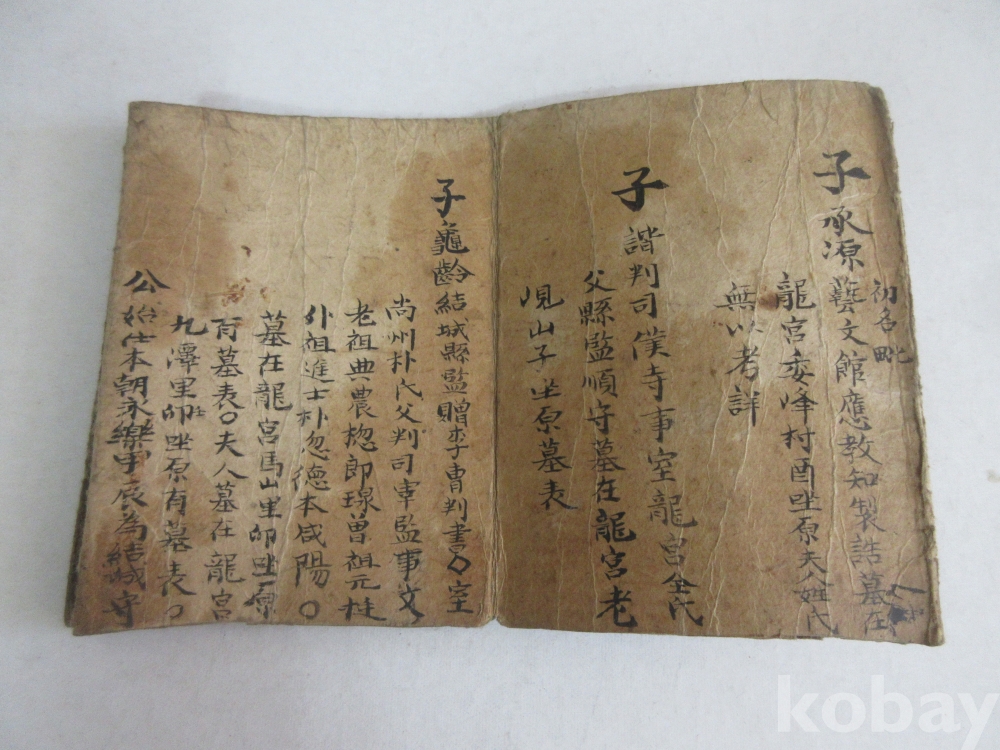 子承源 初名毗
藝文館應教知製誥墓在
龍宮委峰村酉坐原夫人姓氏
無以考詳
子諧判司僕寺事室龍宮全氏
父縣監順守墓在龍宮老
峴山子坐原墓表
子龜齡結城縣監贈李曹判書〇室
尚州朴氏父判司宰監事文
老祖典農摠郎琭曾祖元挺
外祖進士朴忽德本咸陽〇
墓在龍宮馬山里卯坐原
有墓表〇夫人墓在龍宮
九潭里卯坐原有墓表〇
公始仕本朝永樂甲辰為結城守
kobay